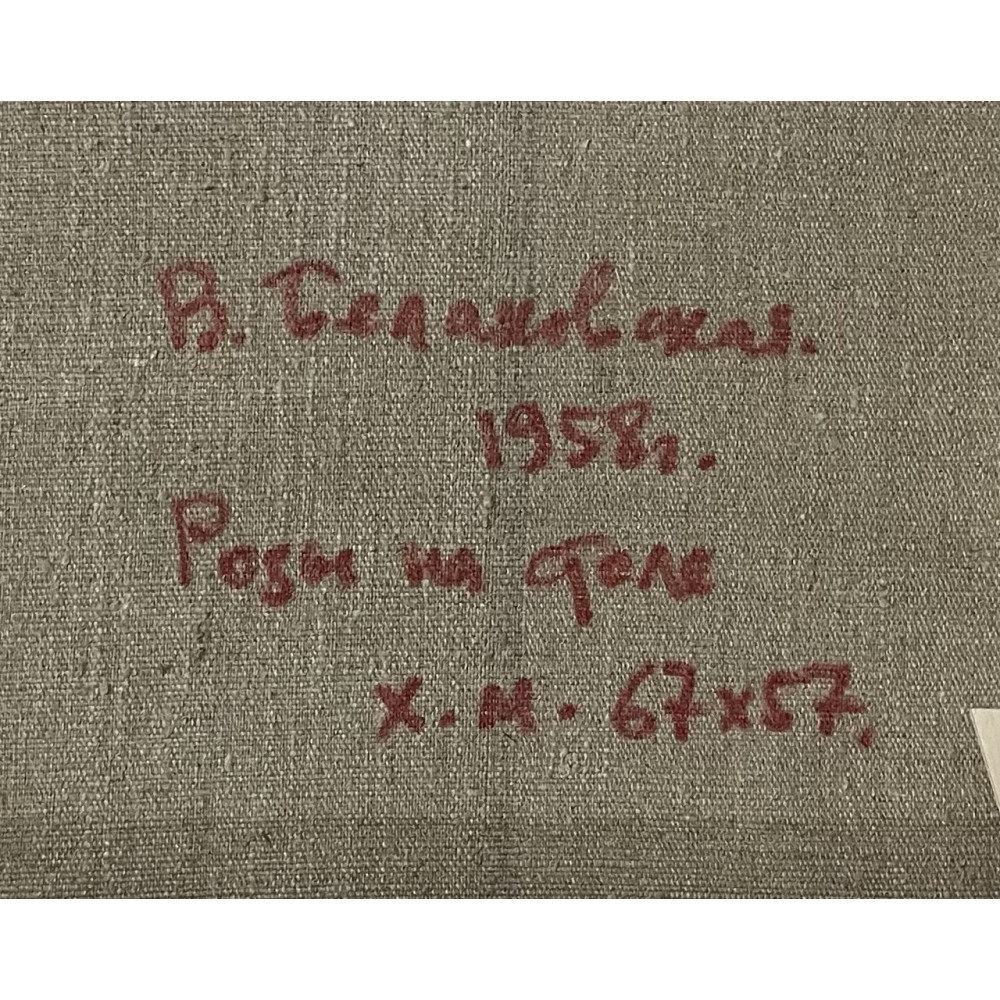 В. Белаковская.
1958г.
Розы на столе
х.м. 67х57.